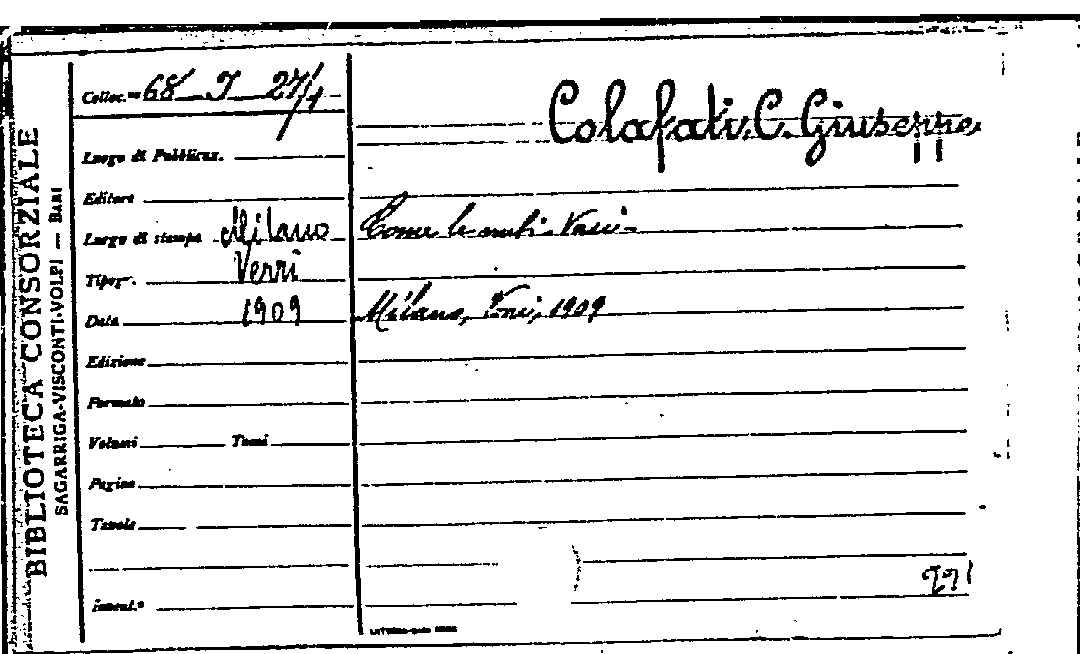 BIBLIOTECA CONSORZIALE
SAGARRIGA-VISCONTI-VOLPI — BARI
Colloc.ne 68 I 27/1
Colafati C. Giuseppe
Luogo di Pubblicaz.
Editore
Luogo di stampa Milano
Come le nubi - Versi -
Tipogr. Verri
Data 1909
Milano, Verri, 1909
Edizione
Formato
Volumi Tomi
Pagine
Tavole
Invent.o